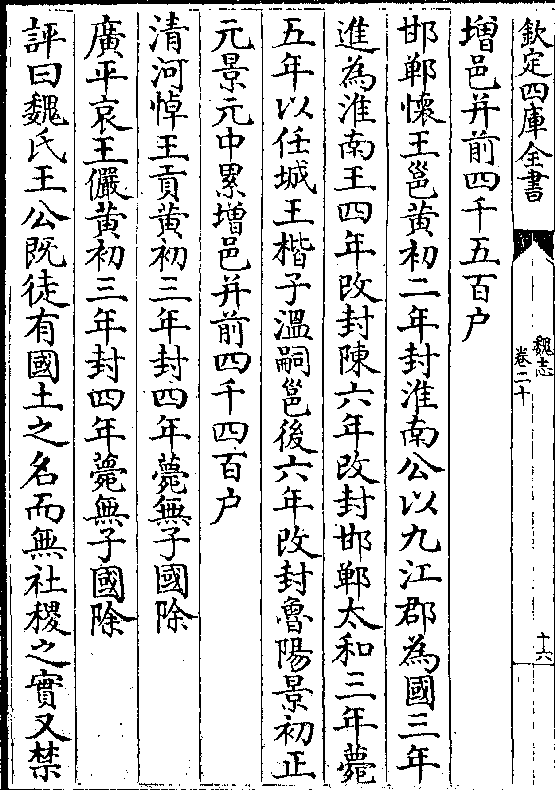 欽定四庫全書
魏志
卷二十
十六
增邑并前四千五百户
邯鄲懷王邕黄初二年封淮南公以九江郡為國三年
進為淮南王四年改封陳六年改封邯鄲太和三年薨
五年以任城王楷子溫嗣邕後六年改封魯陽景初正
元景元中累增邑并前四千四百户
清河悼王貢黄初三年封四年薨無子國除
廣平哀王儼黄初三年封四年薨無子國除
評曰魏氏王公既徒有國土之名而無社稷之實又禁